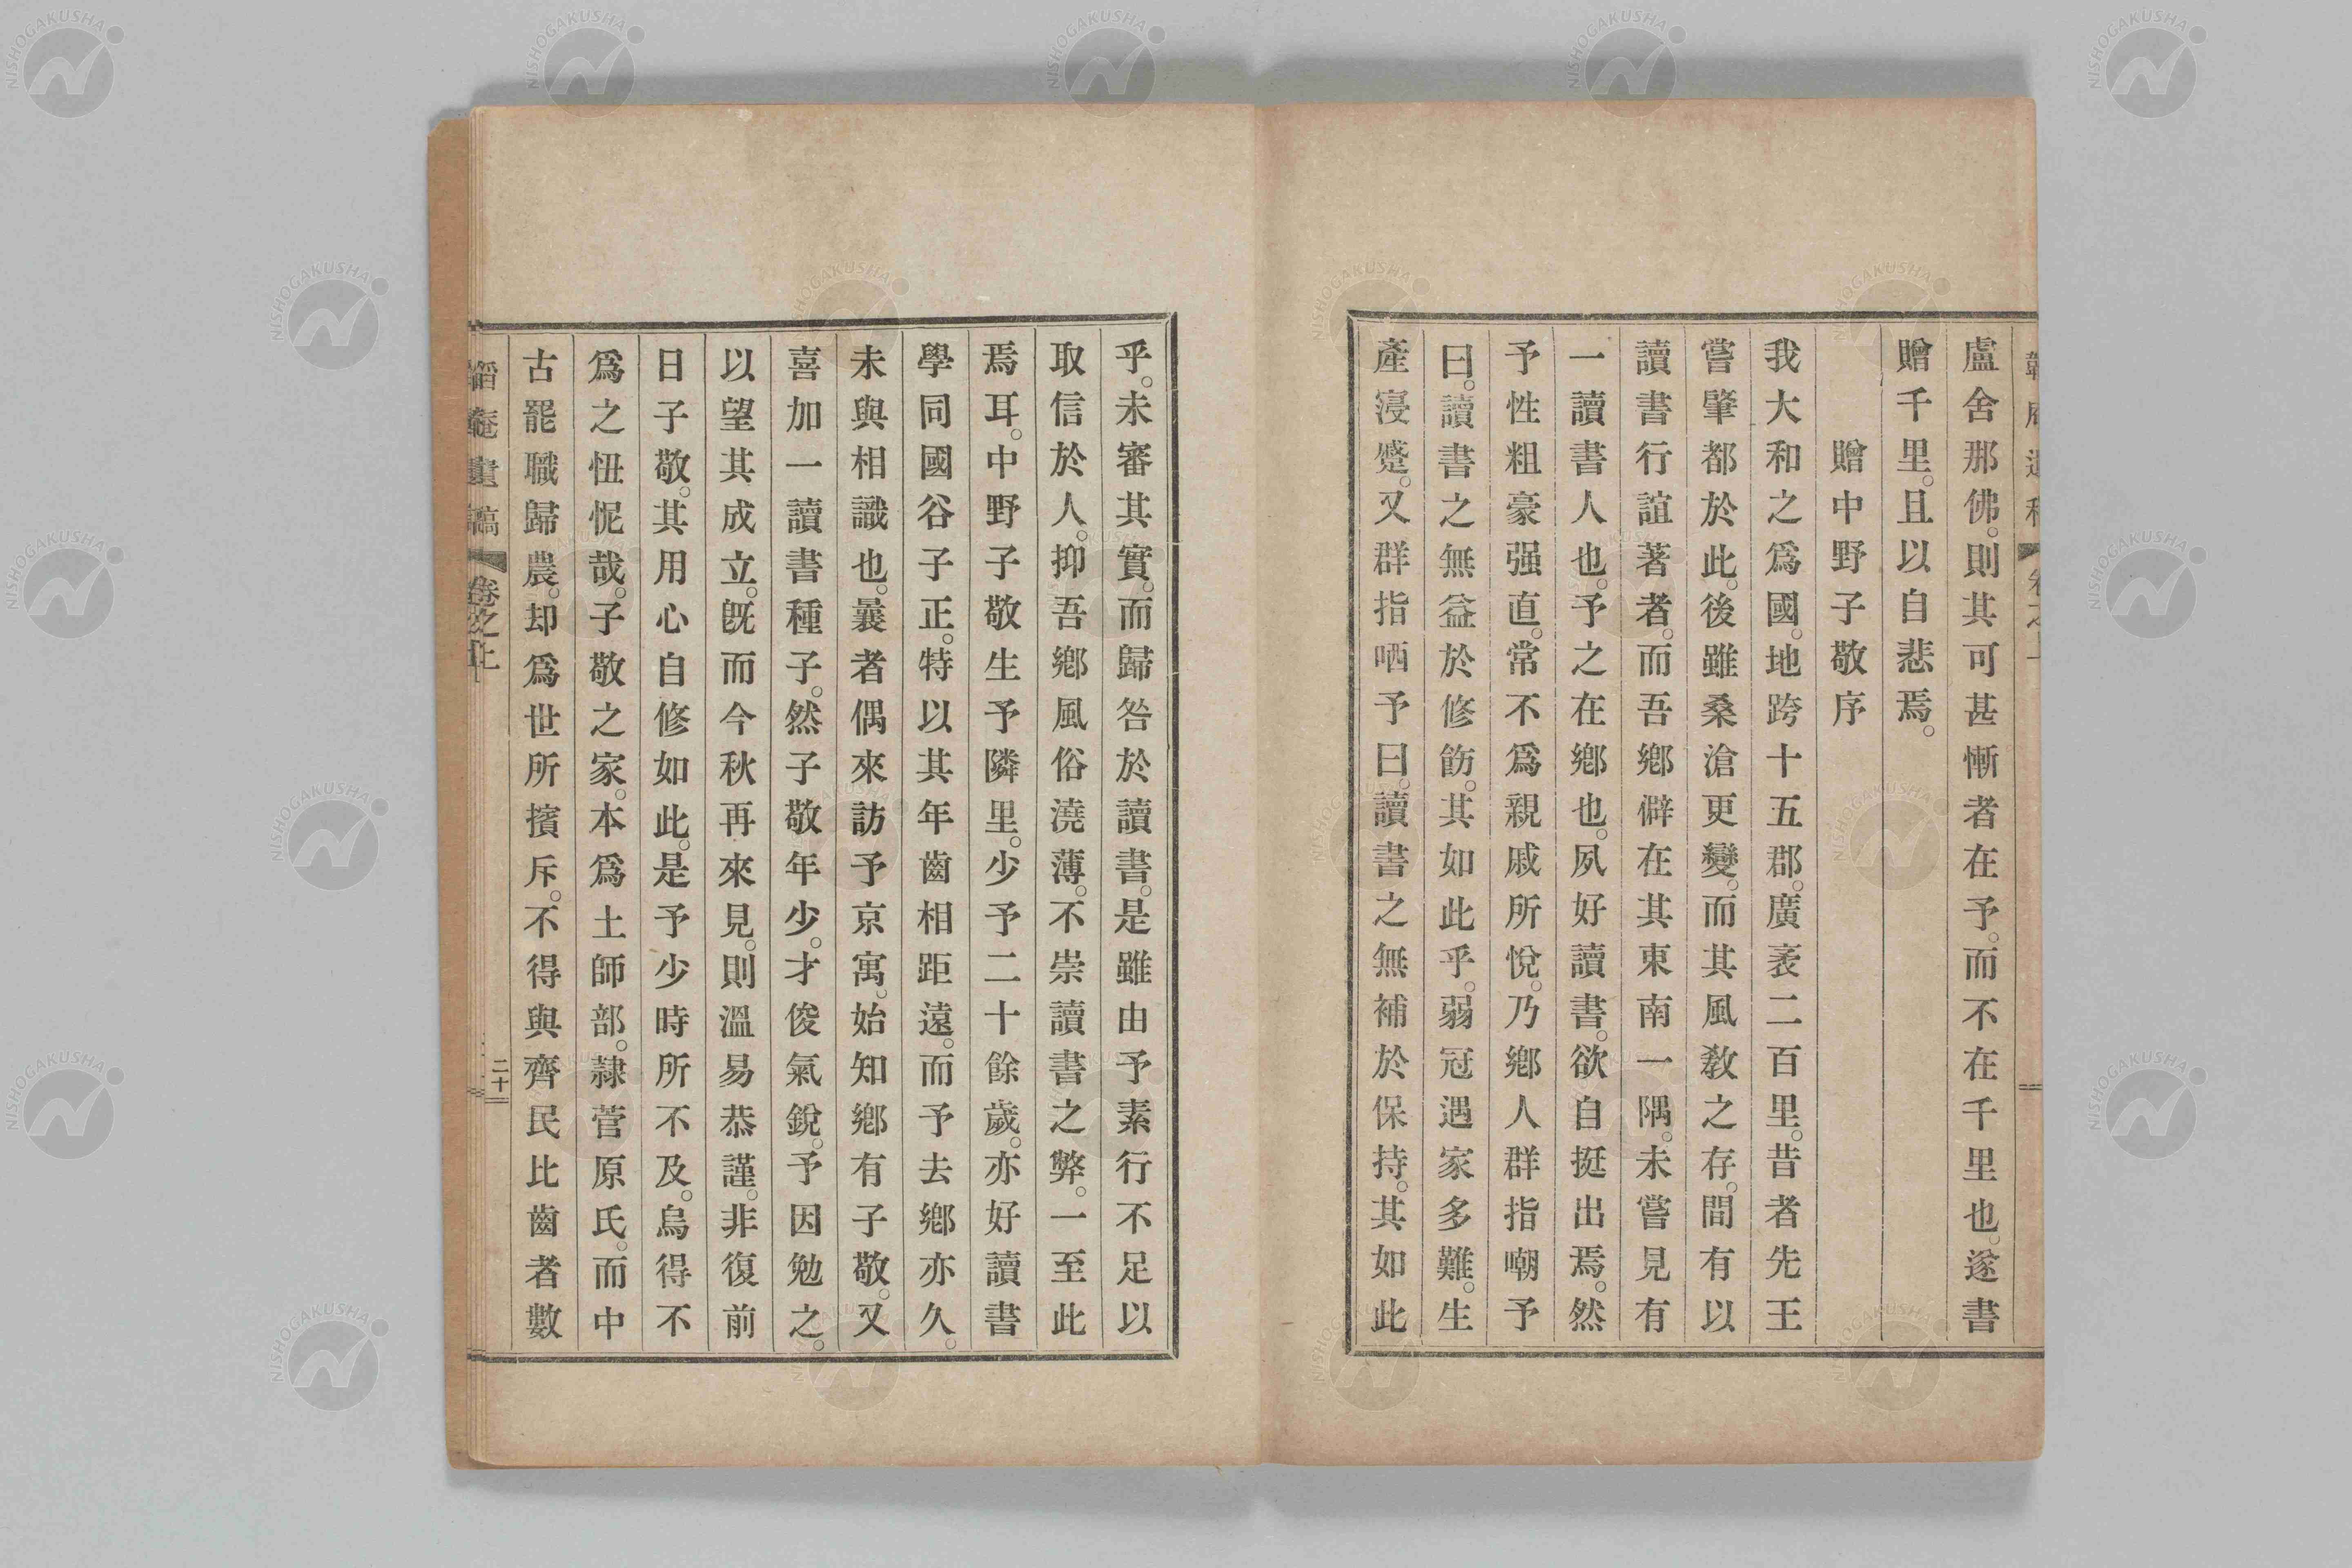 盧舍那佛。則其可甚慚者在予。而不在千里也。遂書
贈千里。且以自悲焉。
贈中野子敬序
我大和之爲國。地跨十五郡。廣袤二百里。昔者先王
嘗肇都於此。後雖桑滄更變。而其風敎之存。間有以
讀書行誼著者。而吾鄕僻在其東南一隅。未嘗見有
一讀書人也。予之在鄕也。夙好讀書。欲自挺出焉。然
予性粗豪强直。常不爲親戚所悅。乃鄕人群指嘲予
曰。讀書之無益於修飭。其如此乎。弱冠遇家多難。生
產寖蹙。又群指哂予曰。讀書之無補於保持。其如此
乎。未審其實。而歸咎於讀書。是雖由予素行不足以
取信於人。抑吾鄕風俗澆薄。不崇讀書之弊。一至此
焉耳。中野子敬生予隣里。少予二十餘歲。亦好讀書
學同國谷子正。特以其年齒相距遠。而予去鄕亦久。
未與相識也。曩者偶來訪予京寓。始知鄕有子敬。又
喜加一讀書種子。然子敬年少。才俊氣銳。予因勉之。
以望其成立。旣而今秋再來見。則溫易恭謹。非復前
日子敬。其用心自修如此。是予少時所不及。烏得不
爲之忸怩哉。子敬之家。本爲土師部。隷菅原氏。而中
古罷職歸農。却爲世所擯斥。不得與齊民比齒者數
韜庵遺稿 卷之上 二十
NISHOGAKUSHA